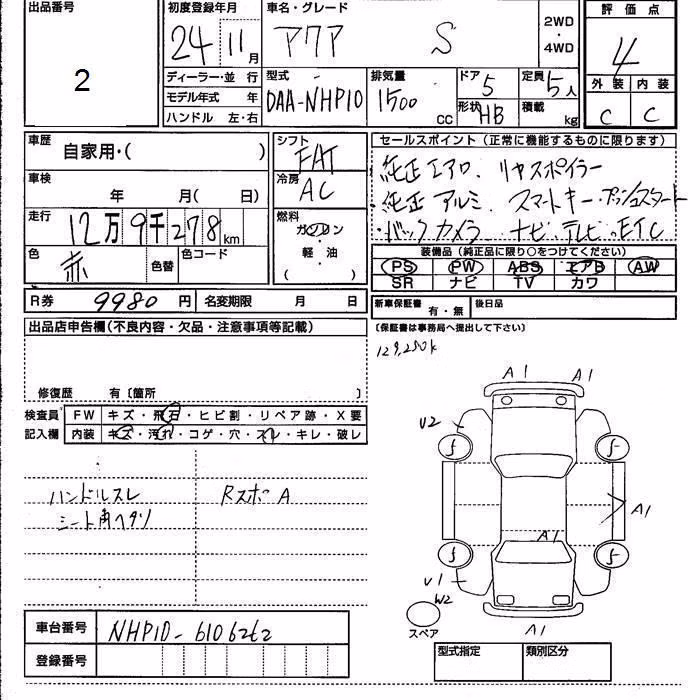 出品番号 初度登録年月 車名・グレード 2WD・4WD 評価点
2 24 11月 アクア S 4
ディーラー・並行 型式 排気量 ドア 5 定員 5人 外装 内装
モデル年式 年 DAA-NHP10 1500cc 形状 HB 積載 kg C C
ハンドル 左・右
車歴 自家用・( ) シフト FAT セールスポイント (正常に機能するものに限ります)
車検 年 月( 日) 冷房 AC 純正エアロ. リヤスポイラー
・純正アルミ. スマートキー・プッシュスタート
走行 12万9千278km 燃料 ガソリン・軽油( ) ・バックカメラ ナビ.テレビ.ETC
色 赤 色替 色コード 装備品 (純正品に限り○をつけてください)
PS PW ABS エアB AW
SR ナビ TV カワ
R券 9980円 名変期限 月 日 新車保証書 有・無 後日品
出品店申告欄(不良内容・欠品・注意事項等記載) (保証書は事務局へ提出して下さい)
129,250k
修復歴 有〔箇所 〕
検査員記入欄 FW キズ・飛石・ヒビ割・リペア跡・X要
内装 キズ・汚れ・コゲ・穴・スレ・キレ・破レ
A1 A1
U2
5 5
ハンドルスレ RスポA
シート角ヘタリ
A1
A1
5 5
U1
W2
スペア
A1
車台番号 NHP10-6106262
登録番号
型式指定 類別区分